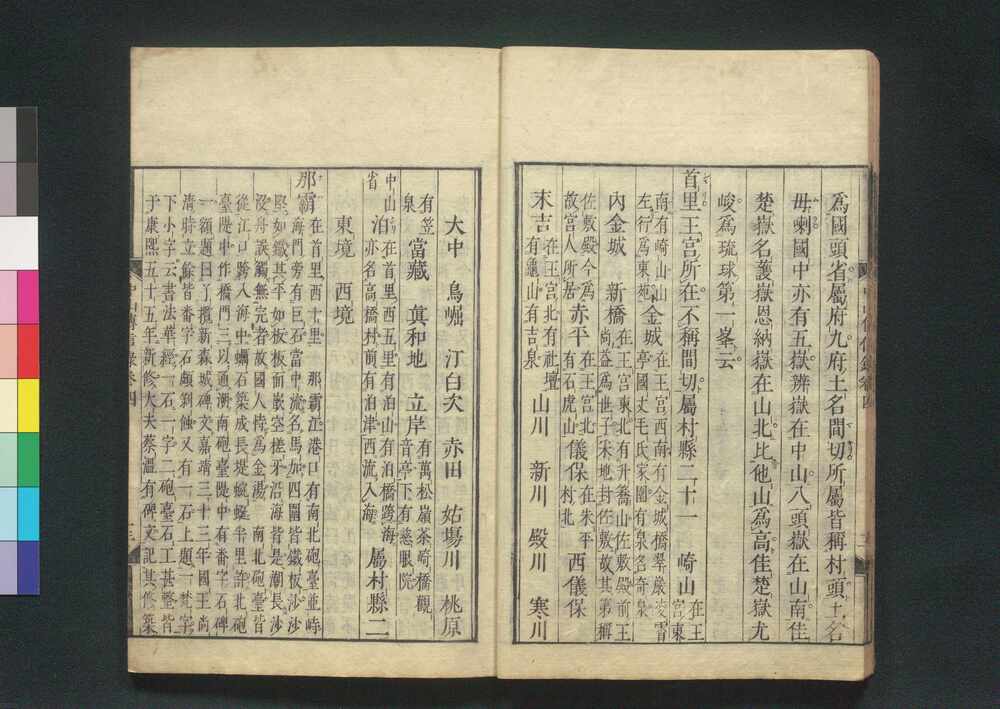 爲國頭省屬府九府土名間切所屬皆稱村頭土名
毋喇國中亦有五嶽辨嶽在中山八頭嶽在山南佳
楚嶽名護嶽恩納嶽在山北比他山爲高佳楚嶽尤
峻爲琉球第一峯云
首里王宮所在不稱間切屬村縣二十一 崎山在王宮東
南有崎山左行爲東苑 金城在王宮西南有金城橋翠巖凌霄亭國丈毛氏家園有泉名寄泉
內金城 新橋在王宮東北有升喬山佐敷殿前王尚益爲世子采地封佐敷故其第稱
佐敷殿今爲故宮人所居 赤平在王宮北有石虎山 儀保在朱平村北 西儀保
末吉在王宮北有社壇有龜山有吉泉 山川 新川 殿川 寒川
大中 鳥堀 汀白次 赤田 姑場川 桃原
有笠泉 當藏 眞和地 立岸有萬松嶺茶崎橋觀音亭下有慈眼院
中山省 泊在首里西五里有泊山有泊橋跨海亦名高橋村前有泊津西流入海 屬村縣二
東境 西境
那霸在首里西十里 那霸江港口有南北砲臺並峙
海門旁有巨石當中流名馬加四圍皆鐵板沙沙
堅如鐵其平如板板而嵌空槎牙沿海皆是潮長沙
沒舟誤觸無完者故國人恃爲金湯 南北砲臺皆
從江口跨入海中蠣石築成長堤蜿蜒半里許北砲
臺隄中作橋門三以通潮南砲臺隄中有番字石碑
一額題曰了攬新森城碑文嘉靖三十三年國王尚
清時立餘皆番字石頗剝蝕又有一石上題一梵字
下小字云書法華經一石一字二砲臺石工甚整皆
于康熙五十五年新修大夫蔡溫有碑文記其修築
中山傳信錄卷四